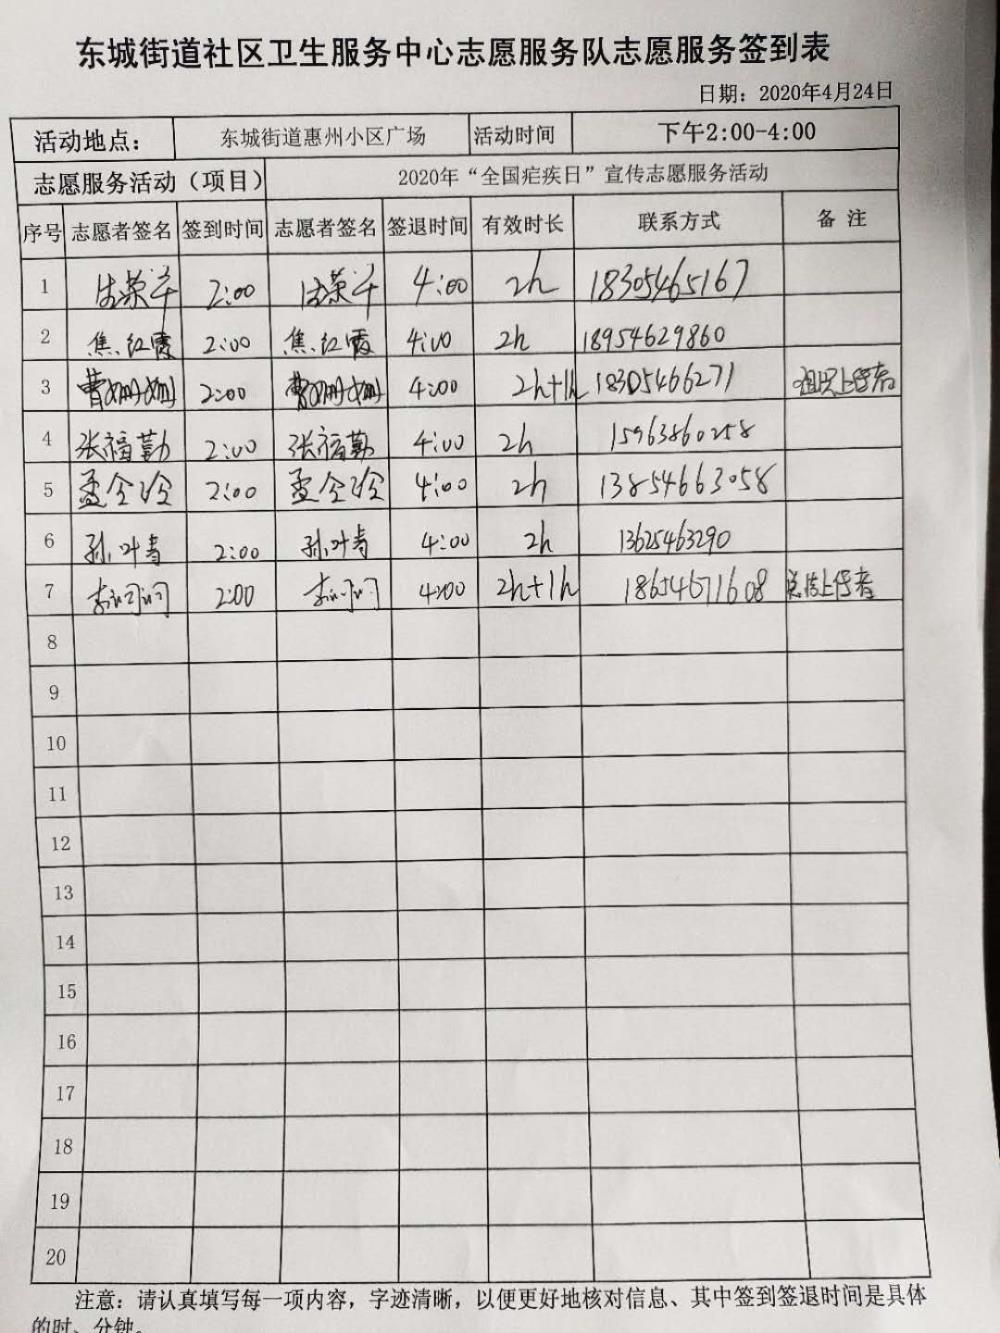 东城街道社区卫生服务中心志愿服务队志愿服务签到表
日期：2020年4月24日
活动地点： 东城街道惠州小区广场 活动时间 下午2:00-4:00
志愿服务活动（项目） 2020年“全国疟疾日”宣传志愿服务活动
序号 志愿者签名 签到时间 志愿者签名 签退时间 有效时长 联系方式 备 注
1 2:00 4:00 2h 18305465167
2 焦红霞 2:00 焦红霞 4:00 2h 18954629860
3 曹姗姗 2:00 曹姗姗 4:00 2h+1h 18305466271 组织上传者
4 张福勤 2:00 张福勤 4:00 2h 15963860258
5 孟令玲 2:00 孟令玲 4:00 2h 13854663058
6 孙叶青 2:00 孙叶青 4:00 2h 13625463290
7 李词词 2:00 李词词 4:00 2h+1h 18654671608 总结上传者
8
9
10
11
12
13
14
15
16
17
18
19
20
注意：请认真填写每一项内容，字迹清晰，以便更好地核对信息、其中签到签退时间是具体
的时、分钟。